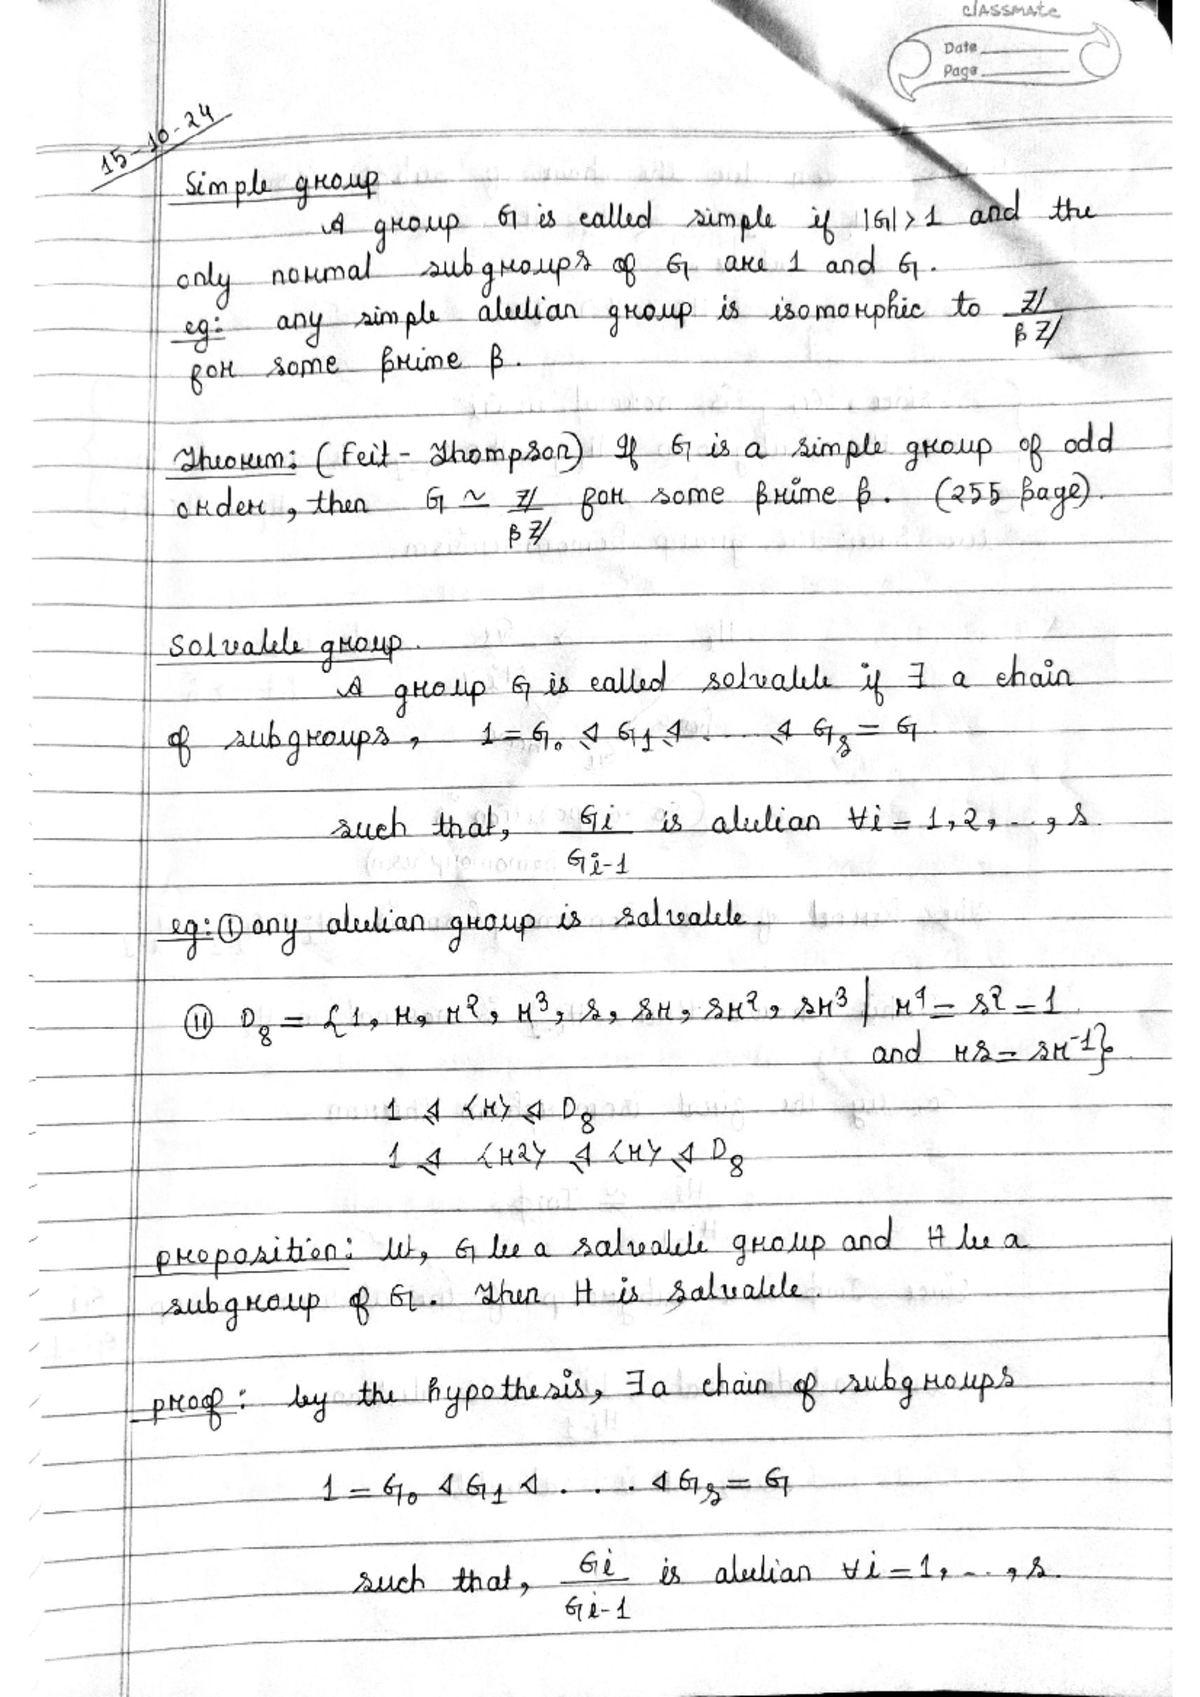 classmate
Date
Page
15-10-24
Simple group
A group G is called simple if |G|>1 and the
only normal subgroups of G are 1 and G.
eg: any simple abelian group is isomorphic to Z/pZ
for some prime p.
Theorem: (Feit-Thompson) If G is a simple group of odd
order, then G ≃ Z/pZ for some prime p. (255 page).
Solvable group.
A group G is called solvable if ∃ a chain
of subgroups, 1 = G₀ ⊴ G₁ ⊴ .... ⊴ Gₛ = G
such that, Gi/Gi-1 is abelian ∀i = 1,2, .., s.
eg: (i) any abelian group is solvable.
(ii) D₈ = {1, r, r², r³, s, sr, sr², sr³ | r⁴ = s² = 1
and rs = sr⁻¹}.
1 ⊴ <r> ⊴ D₈
1 ⊴ <r2> ⊴ <r> ⊴ D₈
proposition: let, G be a solvable group and H be a
subgroup of G. Then H is solvable.
proof: by the hypothesis, ∃ a chain of subgroups
1 = G₀ ⊲ G₁ ⊲ . . . ⊲ Gₛ = G
such that, Gi/Gi-1 is abelian ∀i = 1, .., s.